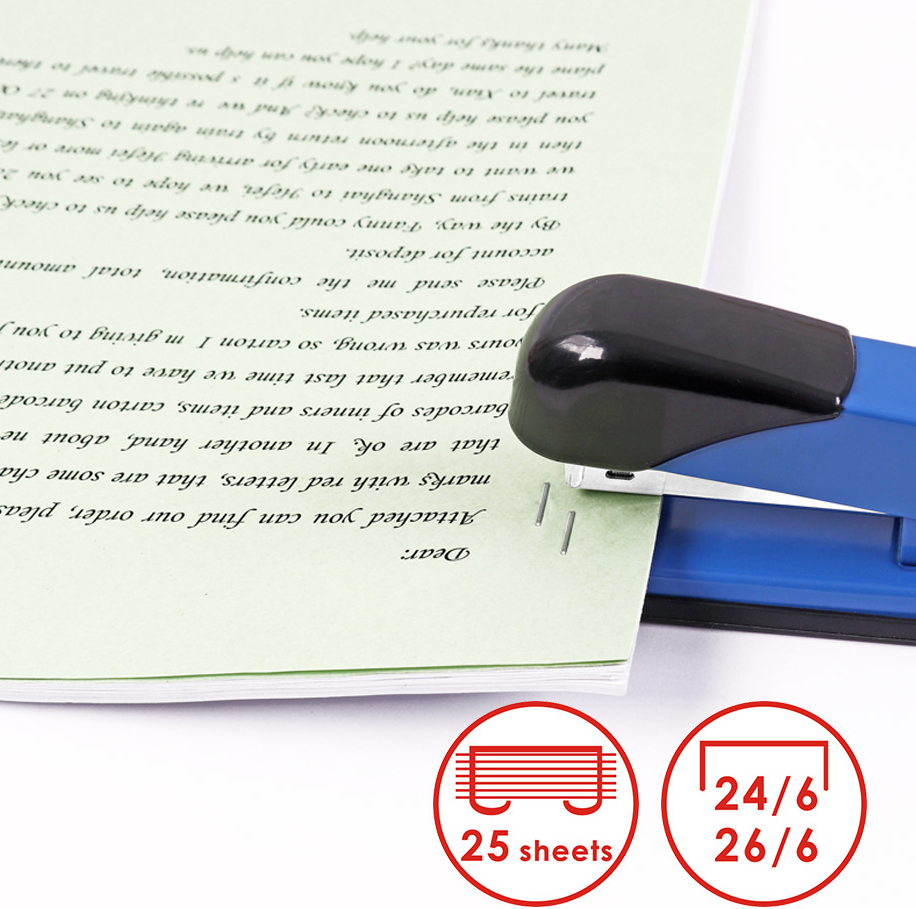 Dear:
Attached you can find our order, pleas
marks with red letters, that are some cha
that are ok. In another hand, about ne
barcodes of inners and items, carton barcode
remember that last time we have to put anoth
yours was wrong, so carton I m giving to you
for repurchased items.
Please send me the confirmation, total amoun
account for deposit.
By the way, Fanny could you please help us to check
trains from Shanghai to Hefei, we hope to see you
we want to take one early for arriving Hefei more or
then in the afternoon return by train again to Shanghai
you please help us to check? And we re thinking on 27
travel to Xian, do you know if it s possible travel to
plane the same day? I hope you can help us.
Many thanks for your help.
25 sheets
24/6
26/6